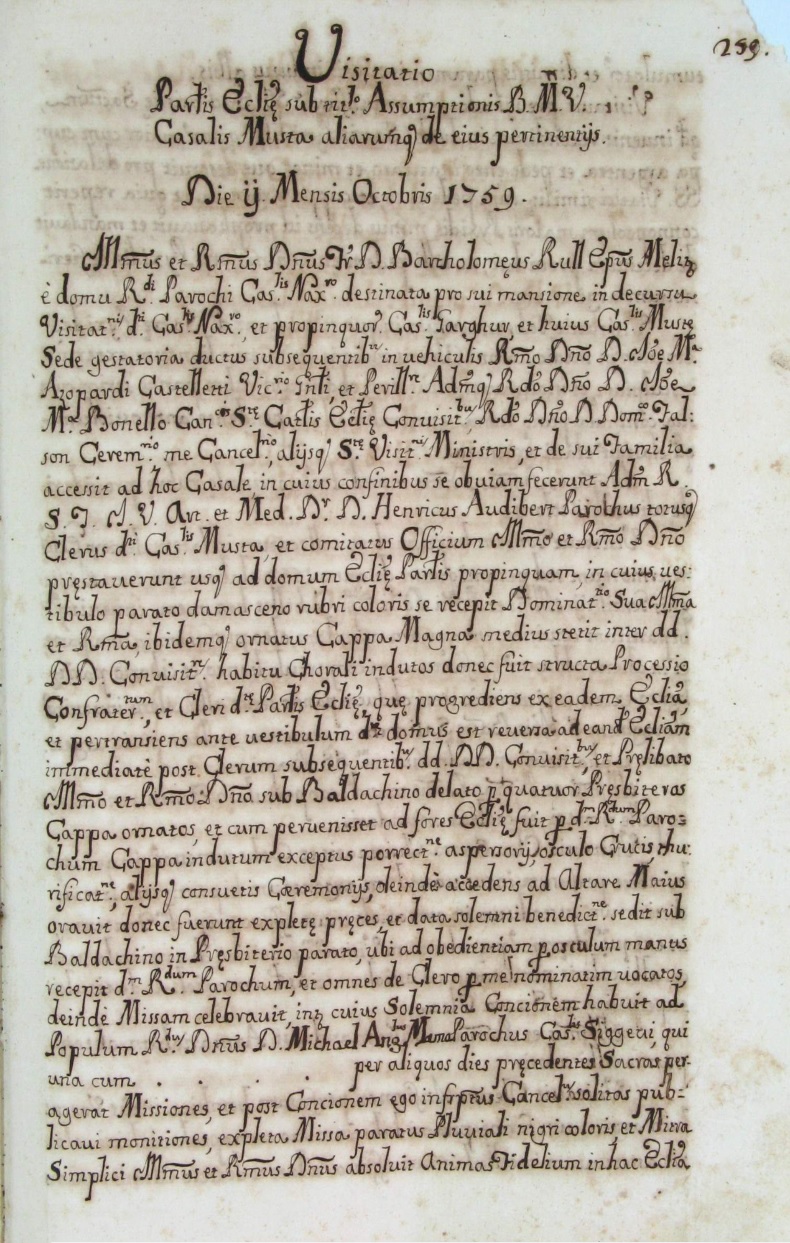 259.
Visitatio
Par̃lis Ecl̃ię sub tit.º Assumptionis B. M. V.
Casalis Musta aliarumq) de eius pertinentijs.
Die ij. Mensis Octobris 1759.
Ill̃mus et Rm̃us Dñus Fr. D. Bartholomęus Rull Ep̃us Melitę
è domu R.di Parochi Cas.lis Nax.ro destinata pro sui mansione in decursu
Visitat.nis d.ti Cas.lis Nax.ro, et propinquor. Cas.lis Garghur, et huius Cas.lis Mustę
Sede gestatoria ductus subsequentib.us in uehiculis Rm̃o Dño D. Joẽ M.a
Azopardi Castelletti Vic.rio Gñli, et Perill.ri Adm̃q) Rdo Dño D. Joẽ
M.a Bonello Can.co S.tę Catl̃is Ecl̃ię Conuisit.bus Rdo Dño D. Dom.co Fal:
son Cerem.rio me Cancel.rio, alijsq) S.tę Visit.nis Ministris, et de sui Familia
accessit ad hoc Casale, in cuius confinibus se obuiam fecerunt Adm̃ R.
S. T. J. V. Art. et Med. D.r D. Henricus Audibert Parochus totusq)
Clerus d.ti Cas.lis Musta, et comitatus Officium Ill̃mo et Rm̃o Dño
pręstauerunt usq) ad domum Ecl̃ię Par̃lis propinquam, in cuius ues:
tibulo parato damasceno rubri coloris se recepit Dominat.rio Sua Ill̃ma
et Rm̃a, ibidemq) ornatus Cappa Magna medius stetit inter dd.
DD. Conuisit.res habitu Chorali indutos donec fuit structa Processio
Confrater.tum, et Cleri d.tę Par̃lis Ecl̃ię, quę progrediens ex eadem Ecl̃ia,
et pertransiens ante uestibulum d.tę domus est reuersa ad eand. Ecl̃iam
immediatè post Clerum subsequentib.us dd. DD. Conuisit.bus, et Pręlibato
Ill̃mo et Rm̃o Dño sub Baldachino delato p quatuor Pręsbiteros
Cappa ornatos, et cum peruenisset ad fores Ecl̃ię fuit p d.m R.dum Paro=
chum Cappa indutum exceptus porrect.ne aspersorij, osculo Crucis, thu:
rificat.ne, alijsq) consuetis Cæremonijs, deinde accedens ad Altare Maius
orauit donec fuerunt expletę pręces, et data solemni benedict.ne sedit sub
Baldachino in Pręsbiterio parato, ubi ad obedientiam p osculum manus
recepit d.m R.dum Parochum, et omnes de Clero p me nominatim uocatos,
deindè Missam celebrauit, intr cuius Solemnia Concionem habuit ad
Populum R.dus Dñus D. Michael Ang.lus Parochus Cas.lis Siggeui, qui
una cum . . . . per aliquos dies pręcedentes Sacras per-
agerat Missiones, et post Concionem ego infrp̃tus Cancel.us solitas pub-
licaui monitiones, expleta Missa paratus Pluuiali nigri coloris, et Mitra
Simplici Ill̃mus et Rm̃us Dñus absoluit Animas Fidelium in hac Ecl̃ia